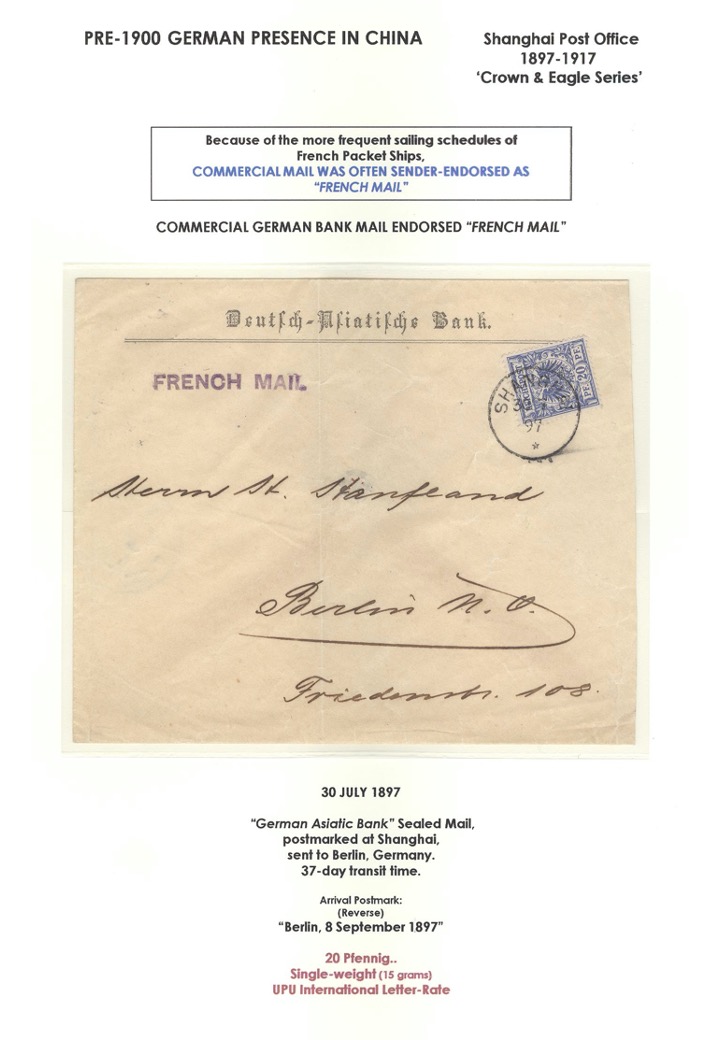 PRE-1900 GERMAN PRESENCE IN CHINA
Shanghai Post Office
1897-1917
‘Crown & Eagle Series’
Because of the more frequent sailing schedules of
French Packet Ships,
COMMERCIAL MAIL WAS OFTEN SENDER-ENDORSED AS
“FRENCH MAIL”
COMMERCIAL GERMAN BANK MAIL ENDORSED “FRENCH MAIL”
Deutsch-Asiatische Bank.
FRENCH MAIL
PF. 20 PF.
97
Berlin N. O.
Friedenstr. 108.
30 JULY 1897
“German Asiatic Bank” Sealed Mail,
postmarked at Shanghai,
sent to Berlin, Germany.
37-day transit time.
Arrival Postmark:
(Reverse)
“Berlin, 8 September 1897”
20 Pfennig..
Single-weight (15 grams)
UPU International Letter-Rate